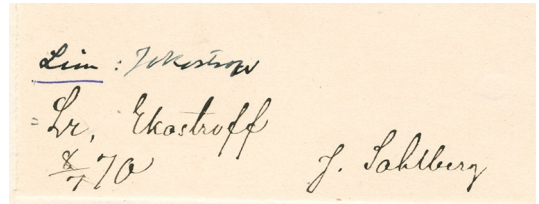 Lim : Jokostrow
= Lr, Ekostroff
8/7 70 J. Sahlberg